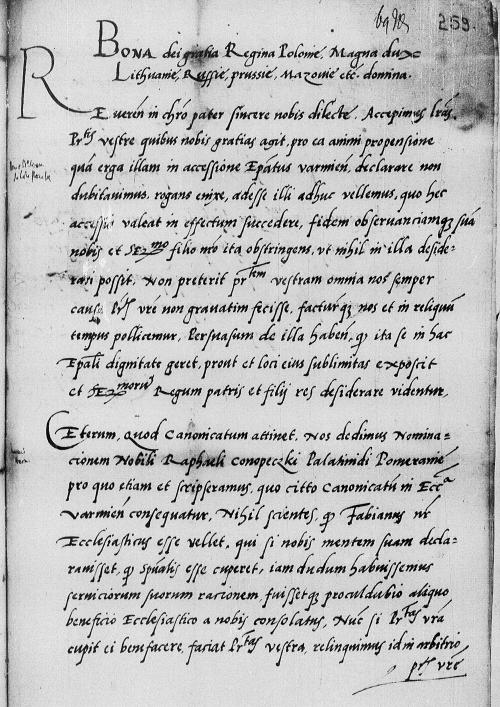 259
BONA dei gratia Regina Polonie, Magna dux
Lithuanie, Russie, prussie, Mazovie etc. domina.
REveren in chro pater sincere nobis dilecte. Accepimus lras
Prtis vestre quibus nobis gratias agit, pro ea animi propensione
quā erga illam in accessione Epatus varmien, declarare non
dubitavimus, rogans enixe, adesse illi adhuc vellemus, quo hec
accessio valeat in effectum succedere, fidem observanciamqz suā
nobis et Sermo filio nro ita obstringens, ut nihil in illa deside-
rari possit. Non preterit prtem vestram omnia nos semper
causa Prtis vre non gravatim fecisse, facturqz nos et in reliquū
tempus pollicemur, Persuasum de illa haben, qz ita se in hac
Epali dignitate geret, prout et loci eius sublimitas exposcit
et Sermorum Regum patris et filij res desiderare videntur.
CEterum, quod Canonicatum attinet, Nos dedimus Nomina-
cionem Nobili Raphaeli Conopeczki Palatinidi Pomeranie
pro quo etiam et scripseramus, quo citto Canonicatū in Ecca
varmien consequatur, Nihil scientes, qz Fabianus nr
Ecclesiasticus esse vellet, qui si nobis mentem suam decla-
ravisset, qz spualis esse cuperet, iam dudum habuissemus
serviciorum suorum racionem, fuissetqz proculdubio aliquo
beneficio Ecclesiastico a nobis consolatus, Nūc si Prtas vrā
cupit ei benefacere, faciat Prtas vestra, relinquimus id in arbitrio
prtis vre